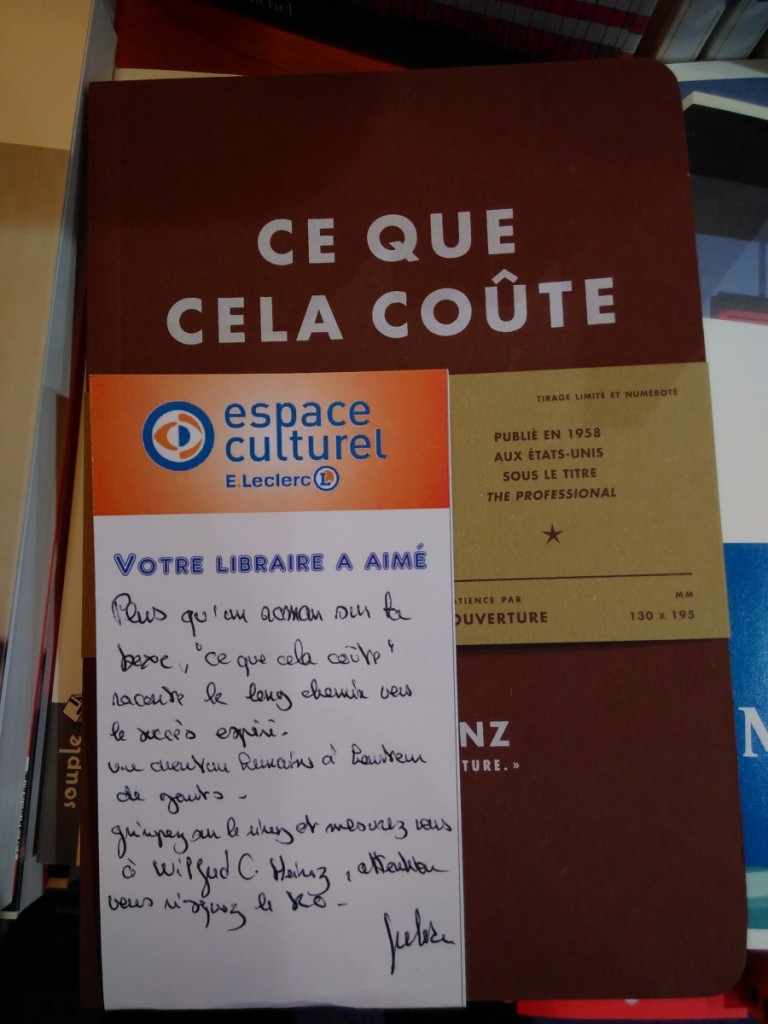 CE QUE
CELA COÛTE
TIRAGE LIMITÉ ET NUMÉROTÉ
PUBLIÉ EN 1958
AUX ÉTATS-UNIS
SOUS LE TITRE
THE PROFESSIONAL
ATIENCE PAR
OUVERTURE
MM
130 x 195
NZ
TURE. »
espace
culturel
E.Leclerc L
VOTRE LIBRAIRE A AIMÉ
Plus qu'un roman sur la
boxe, "ce que cela coûte"
raconte le long chemin vers
le succès espéré.
une aventure humaine à hauteur
de gants.
grimpez sur le ring et mesurez vous
à Wilfred C. Heinz, attention
vous risquez le KO.
souple
M